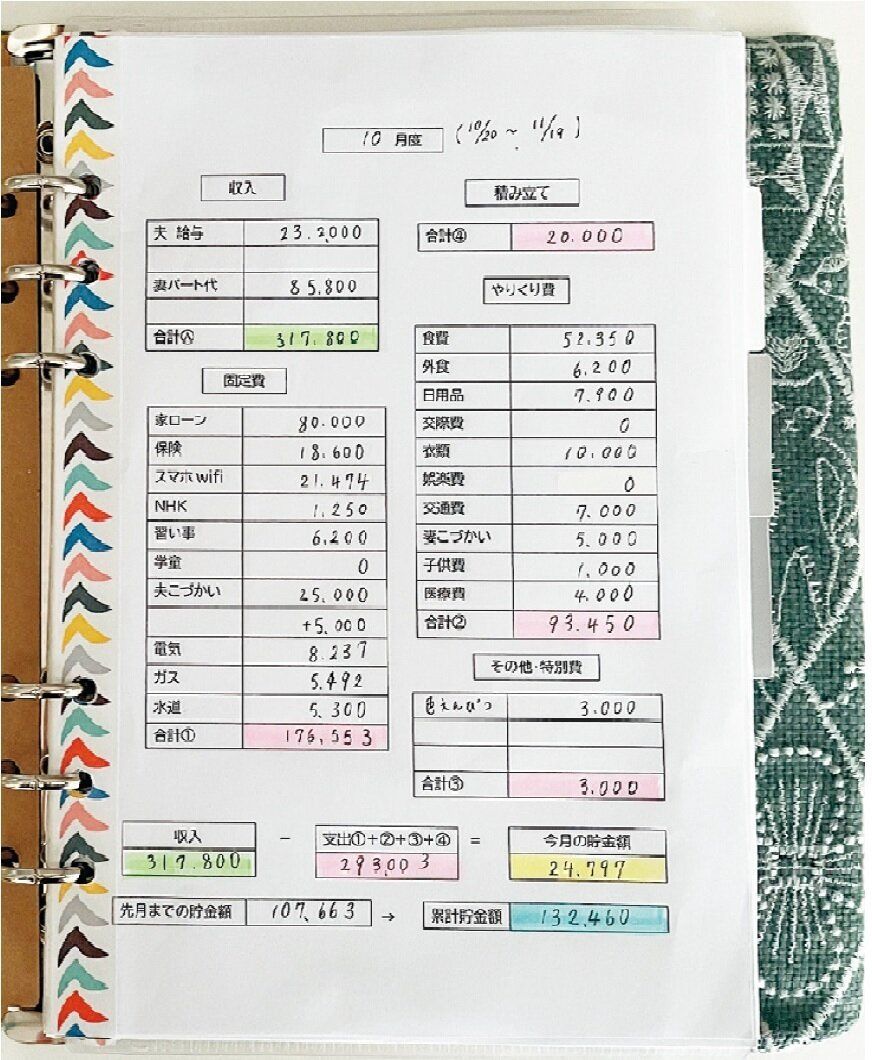 10 月度 (10/20 ~ 11/19)
収入
夫 給与 23,2000
妻パート代 85.800
合計Ⓐ 317.800
固定費
家ローン 80.000
保険 18.600
スマホwifi 21.474
NHK 1.250
習い事 6,200
学童 0
夫こづかい 25,000
+5,000
電気 8.237
ガス 5.492
水道 5,300
合計① 176,553
積み立て
合計④ 20.000
やりくり費
食費 52.350
外食 6,200
日用品 7,900
交際費 0
衣類 10,000
娯楽費 0
交通費 7,000
妻こづかい 5,000
子供費 1,000
医療費 4,000
合計② 93.450
その他・特別費
色えんぴつ 3.000
合計③ 3.000
収入 － 支出①+②+③+④ = 今月の貯金額
317.800 293,003 24.797
先月までの貯金額 107,663 → 累計貯金額 132,460